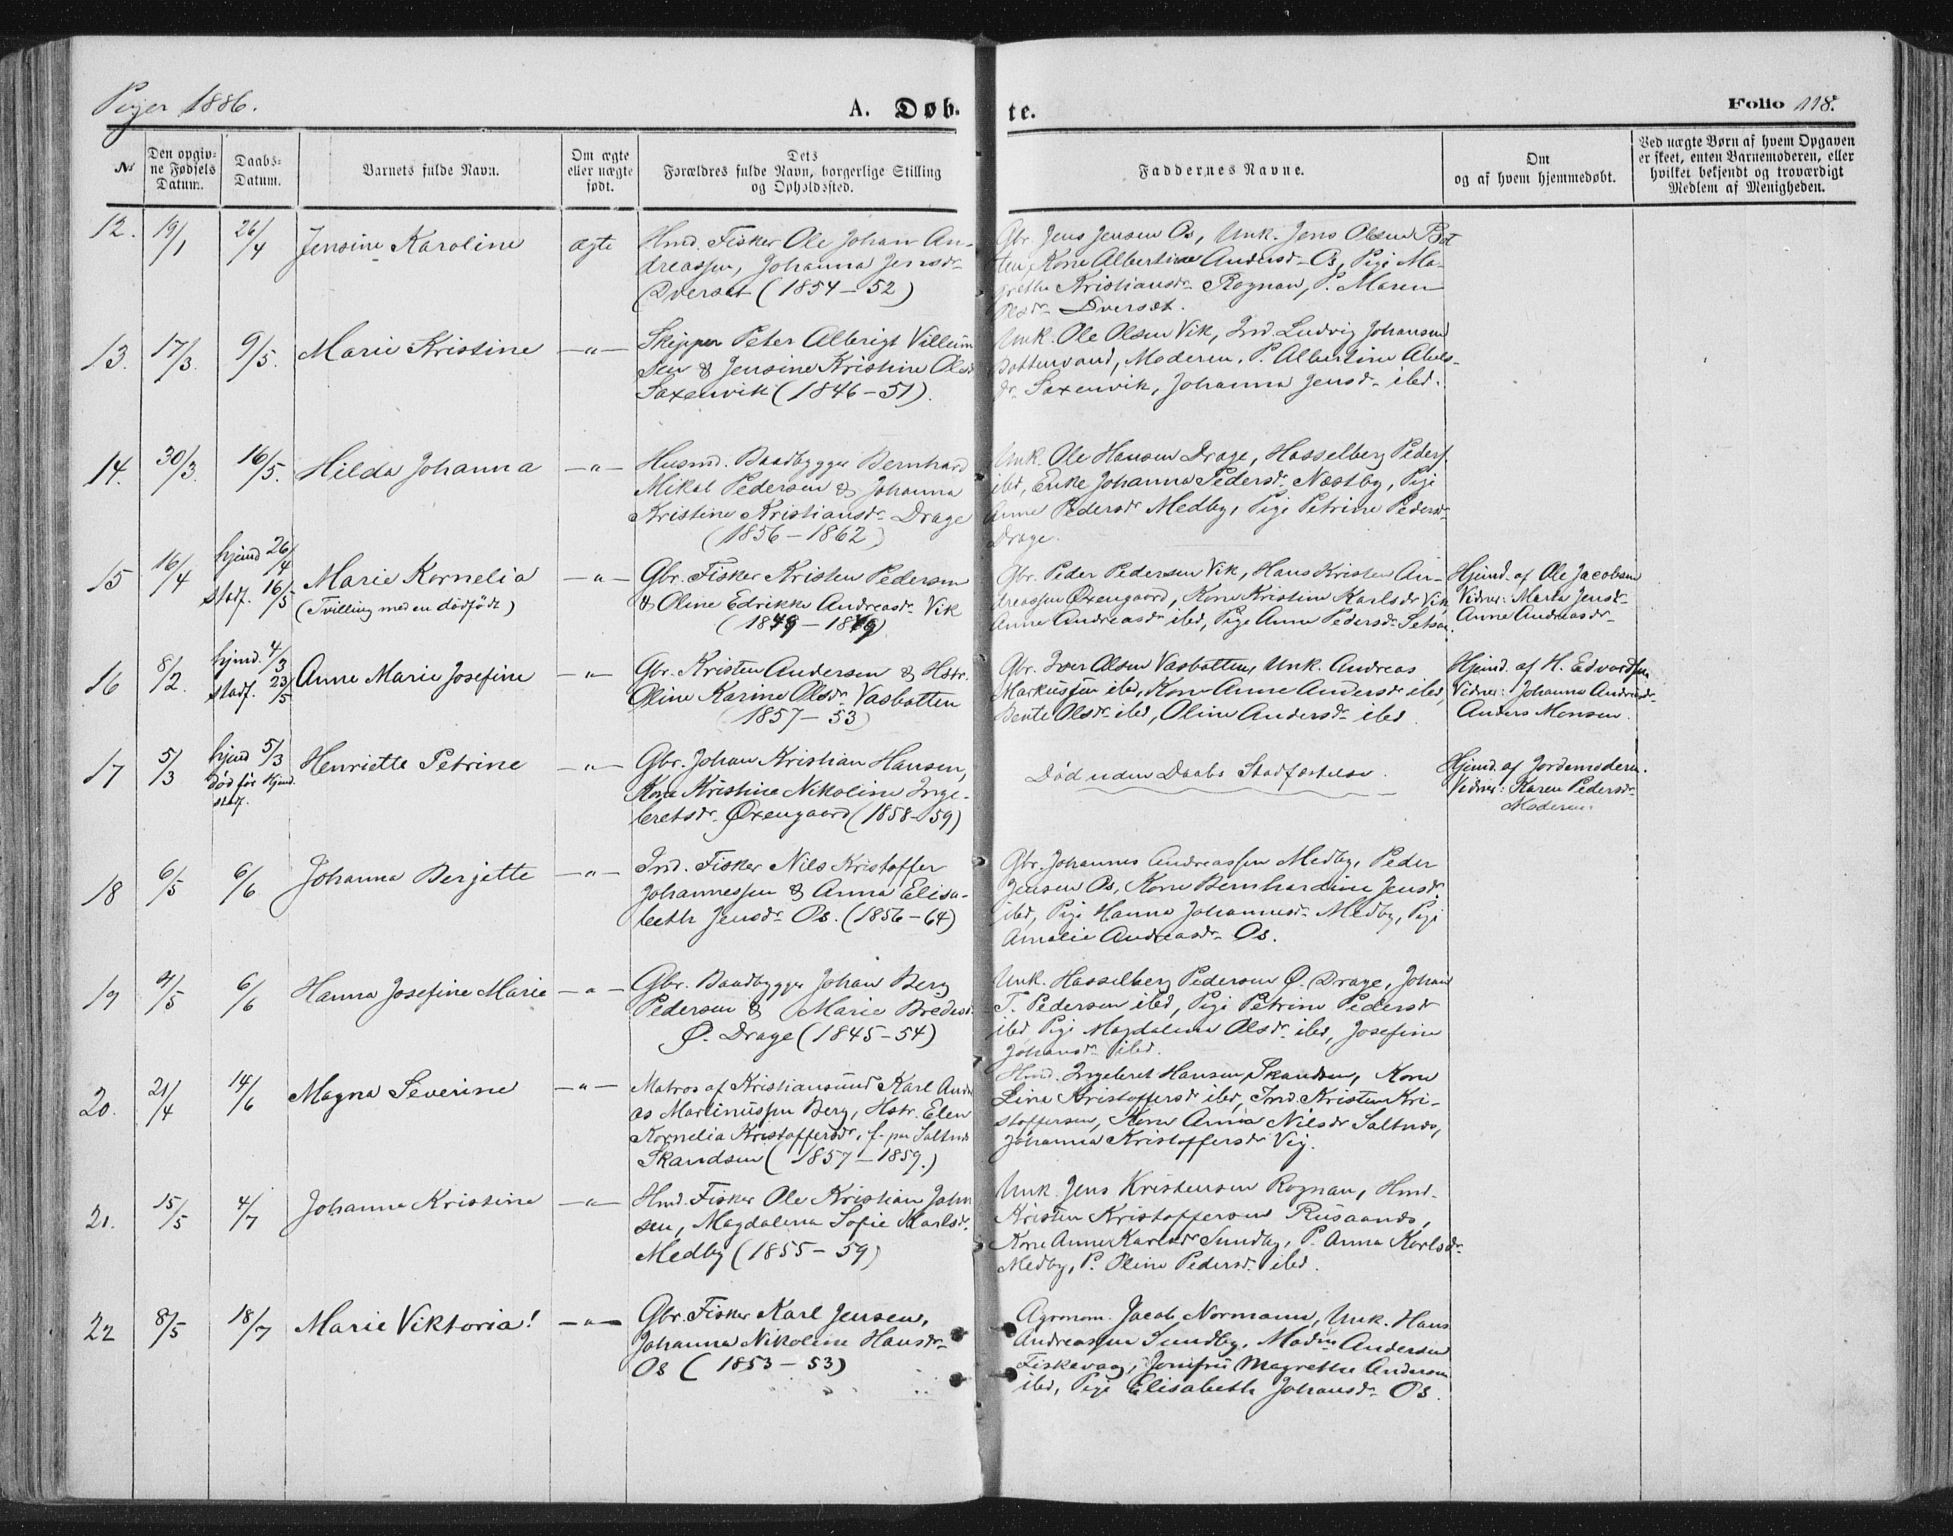 Piger 1886.
A. Døb-
te.
Folio 118.
No
Den opgiv-
ne Fødsels
Datum.
Daabs-
Datum.
Barnets fulde Navn.
Om ægte
eller uægte
født.
Dets
Forældres fulde Navn, borgerlige Stilling
og Opholdssted.
Faddernes Navne.
Om
og af hvem hjemmedøbt.
Ved uægte Børn af hvem Opgaven
er skeet, enten Barnemoderen, eller
hvilket bekjendt og troværdigt
Medlem af Menigheden.
12. 19/1 26/4 Jensine Karoline ægte
Hmd. Fisker Ole Johan An-
dreassen, Johanna Jensdr
Dverset (1854-52)
Gbr. Jens Jensen Os, Unk. Jens Olsen Bot
ten, Kone Albertine Andersdr Os, Pige Ma-
grethe Kristiansdr Rognan, P. Maren
Olsdr Dverset.
13. 17/3. 9/5. Marie Kristine -"-
Skipper Peter Albrigt Villum
sen & Jensine Kristine Olsd
Saxenvik (1846-51).
Unk. Ole Olsen Vik, Ind. Ludvig Johansen
Bottenvand, Moderen, P. Albertine Abels-
dr Saxenvik, Johanna Jensdr ibd.
14. 30/3. 16/5. Hilda Johanna -"-
Husmd. Baadbygger Bernhard
Mikal Pedersen & Johanna
Kristine Kristiansdr Drage
(1856-1862)
Unk. Ole Hansen Drage, Hasselberg Peders.
ibd, Enke Johanna Pedersdr Næstby, Pige
Anne Pedersdr Medby, Pige Petrine Pedersdr
Drage.
15 16/4 hjmd 26/4
stadf. 16/5 Marie Kornelia -"-
(Tvilling med en dødfødt)
Gbr. Fisker Kristen Pedersen
& Oline Edrikke Andreasdr Vik
Gbr. Peder Pedersen Vik, Hans Kristen An-
dreassen Øxengaard, Kone Kristine Karlsdr Vik,
Anne Andreasdr ibd, Pige Anne Pedersdr Setsaa.
Hjmd. af Ole Jacobsen
Vidner: Marta Jensdr
Anne Andreasdr
16 8/2. hjmd. 4/3
stadf. 23/5 Anne Marie Josefine -"-
Gbr. Kristen Andersen & Hstr.
Oline Karine Olsdr Vasbotten
(1857-53)
Gbr. Iver Olsen Vasbotten, Unk. Andreas
Markussen ibd, Kone Anne Andersdr ibd,
Bente Olsdr ibd, Oline Andersdr ibd.
Hjmd. af H. Edvardsen
Vidner: Johanna Andreasdr
Anders Monsen.
17 5/3 hjmd 5/3
død før Hjmd.
stadf. Henriette Petrine -"-
Gbr. Johan Kristian Hansen,
Kone Kristine Nikoline Inge-
bretsdr. Øxengaard (1858-59)
Død uden Daabs Stadfæstelse.
Hjmd. af Jordemoderen.
Vidner: Karen Pedersdr
Moderen.
18 6/5 6/6 Johanna Bergitte -"-
Ind. Fisker Nils Kristoffer
Johannessen & Anna Elisa-
beth Jensdr Os. (1856-64)
Gbr. Johannes Andreassen Medby, Peder
Jensen Os, Kone Bernhardine Jensdr
ibd, Pige Hanna Johannesdr Medby, Pige
Amalie Andreasdr Os.
19 4/5 6/6 Hanna Josefine Marie -"-
Gbr. Baadbygger Johan Berg
Pedersen & Marie Bredesd
Ø. Drage (1845-54)
Unk. Hasselberg Pedersen Ø. Drage, Johan
T. Pedersen ibd, Pige Petrine Pedersdr
ibd Pige Magdalena Olsdr ibd, Josefine
Johansdr ibd.
20. 21/4 14/6 Magna Severine -"-
Matros af Kristiansund Karl Andre
as Martinussen Berg, Hstr. Elen
Kornelia Kristoffersdr, f. paa Saltnes
Skandsen (1857-1859.)
Hmd. Ingebret Hansen Skandsen, Kone
Line Kristoffersdr ibd, Ind. Kristen Kri-
stoffersen, Kone Anna Nilsdr Saltnes,
Johanna Kristoffersdr Vig.
21. 15/5 4/7 Johanna Kristine -"-
Hmd. Fisker Ole Kristian John
sen, Magdalena Sofie Karlsdr.
Medby (1855-59)
Unk. Jens Kristensen Rognan, Hmd.
Kristen Kristoffersen Rusaanes,
Kone Anne Karlsdr Sundby, P. Anna Karlsdr
Medby, P. Oline Pedersdr ibd.
22 8/5 18/7 Marie Viktoria! -"-
Gbr. Fisker Karl Jensen,
Johanna Nikoline Hansdr
Os (1853-53)
Agronom. Jacob Normann, Unk. Hans
Andreassen Sundby, Madm Andersen
Fiskevaag, Jomfru Magrethe Andersen
ibd, Pige Elisabeth Johansdr Os.